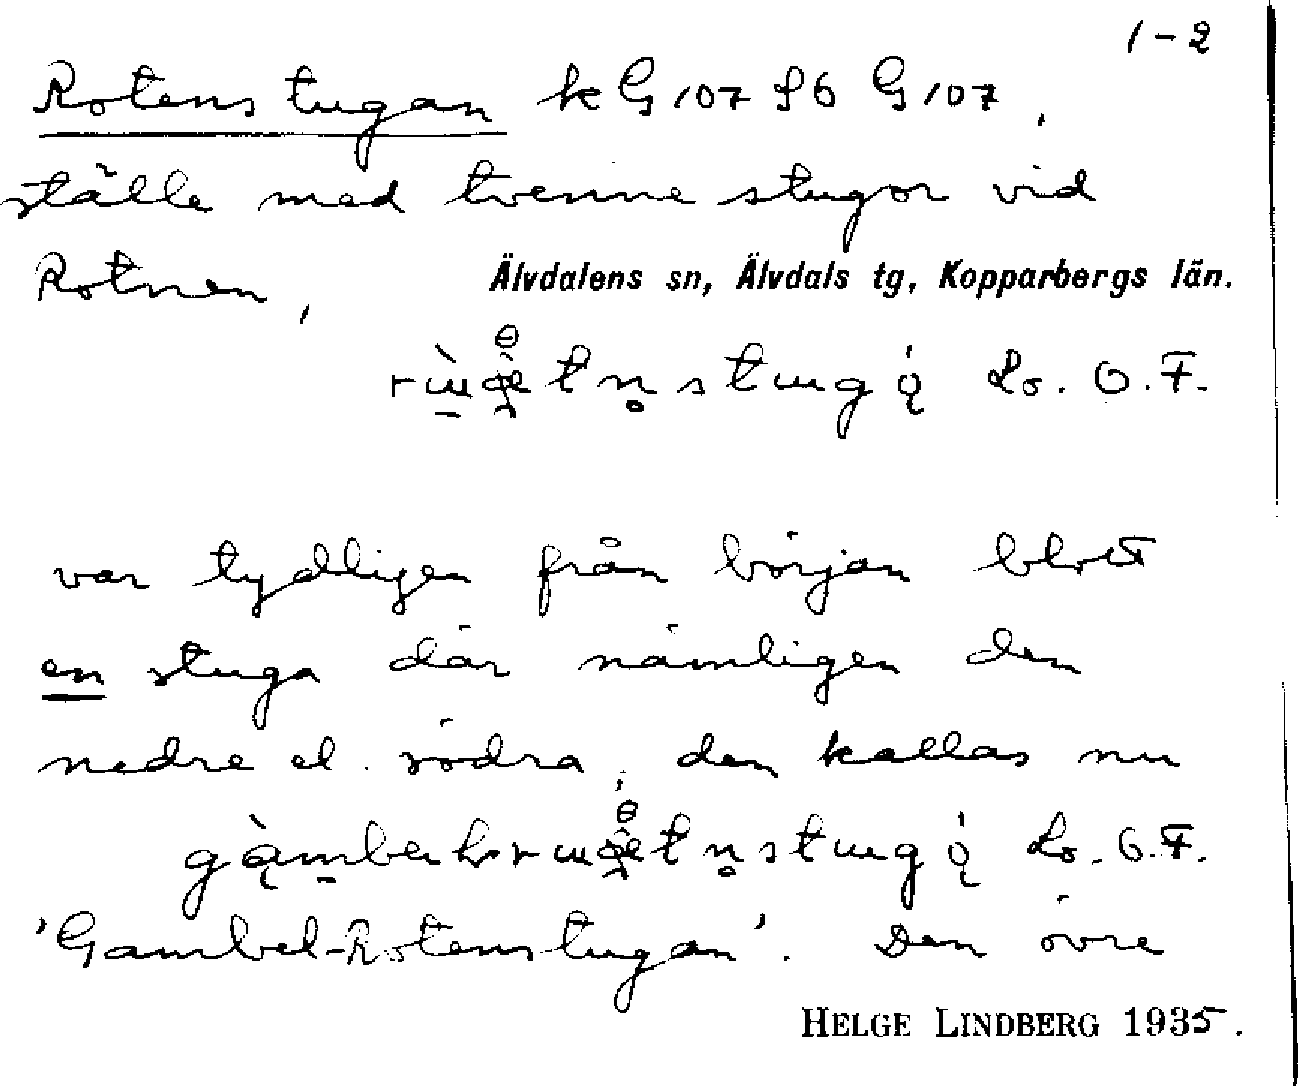 1-2
Rotenstugan k G 107 Sb G 107,
ställe med tvenne stugor vid
Rotnen,
Älvdalens sn, Älvdals tg, Kopparbergs län.
Lo. O.F.
var tydligen från början blott
en stuga där nämligen den
nedre el. södra, den kallas nu
Lo. O.F.
'Gambel-Rotenstugan'. Den övre
HELGE LINDBERG 1935.